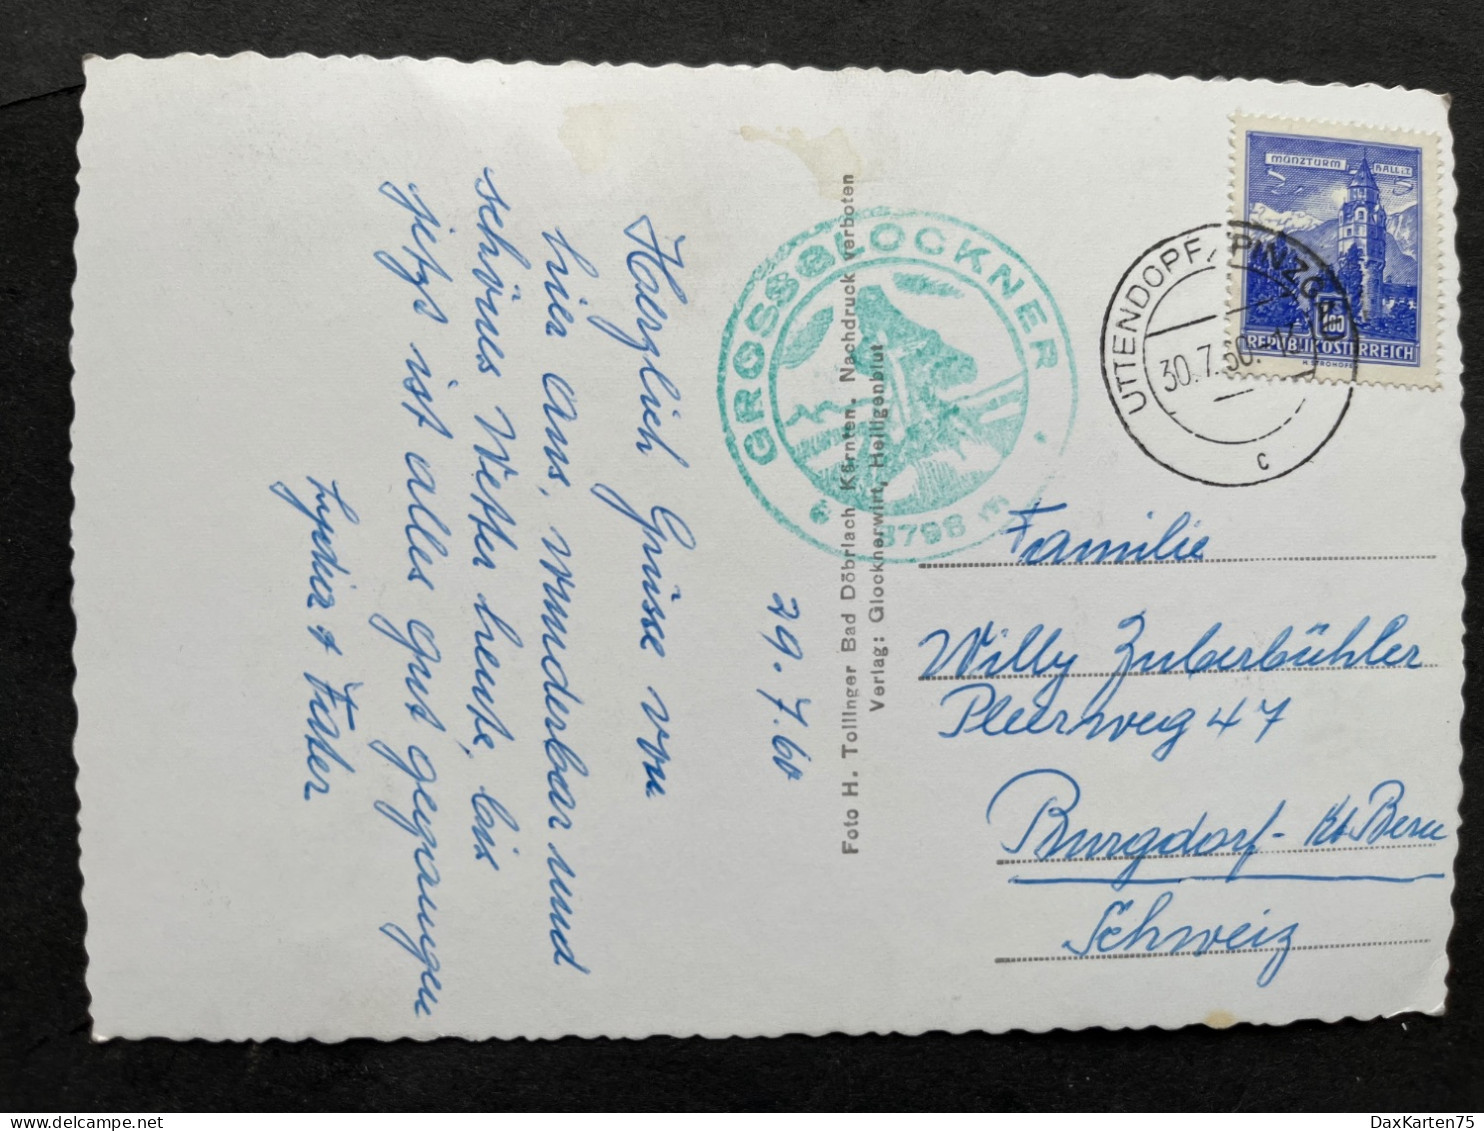 29.7.60
Herzlich Grüsse von
hier aus, wunderbar und
schönes Wetter heute, bis
jetzt ist alles gut gegangen
Lydia &
Foto H. Tollinger Bad Döbriach, Kärnten. Nachdruck verboten
Verlag: Glocknerwirt, Heiligenblut
GROSSGLOCKNER
3798 m
MÜNZTURM HALL i.T.
REPUBLIK ÖSTERREICH
UTTENDORF, PINZGAU
30.7.60
c
Familie
Willy Zuberbühler
Pleerweg 47
Burgdorf - Kt. Bern
Schweiz
DaxKarten75